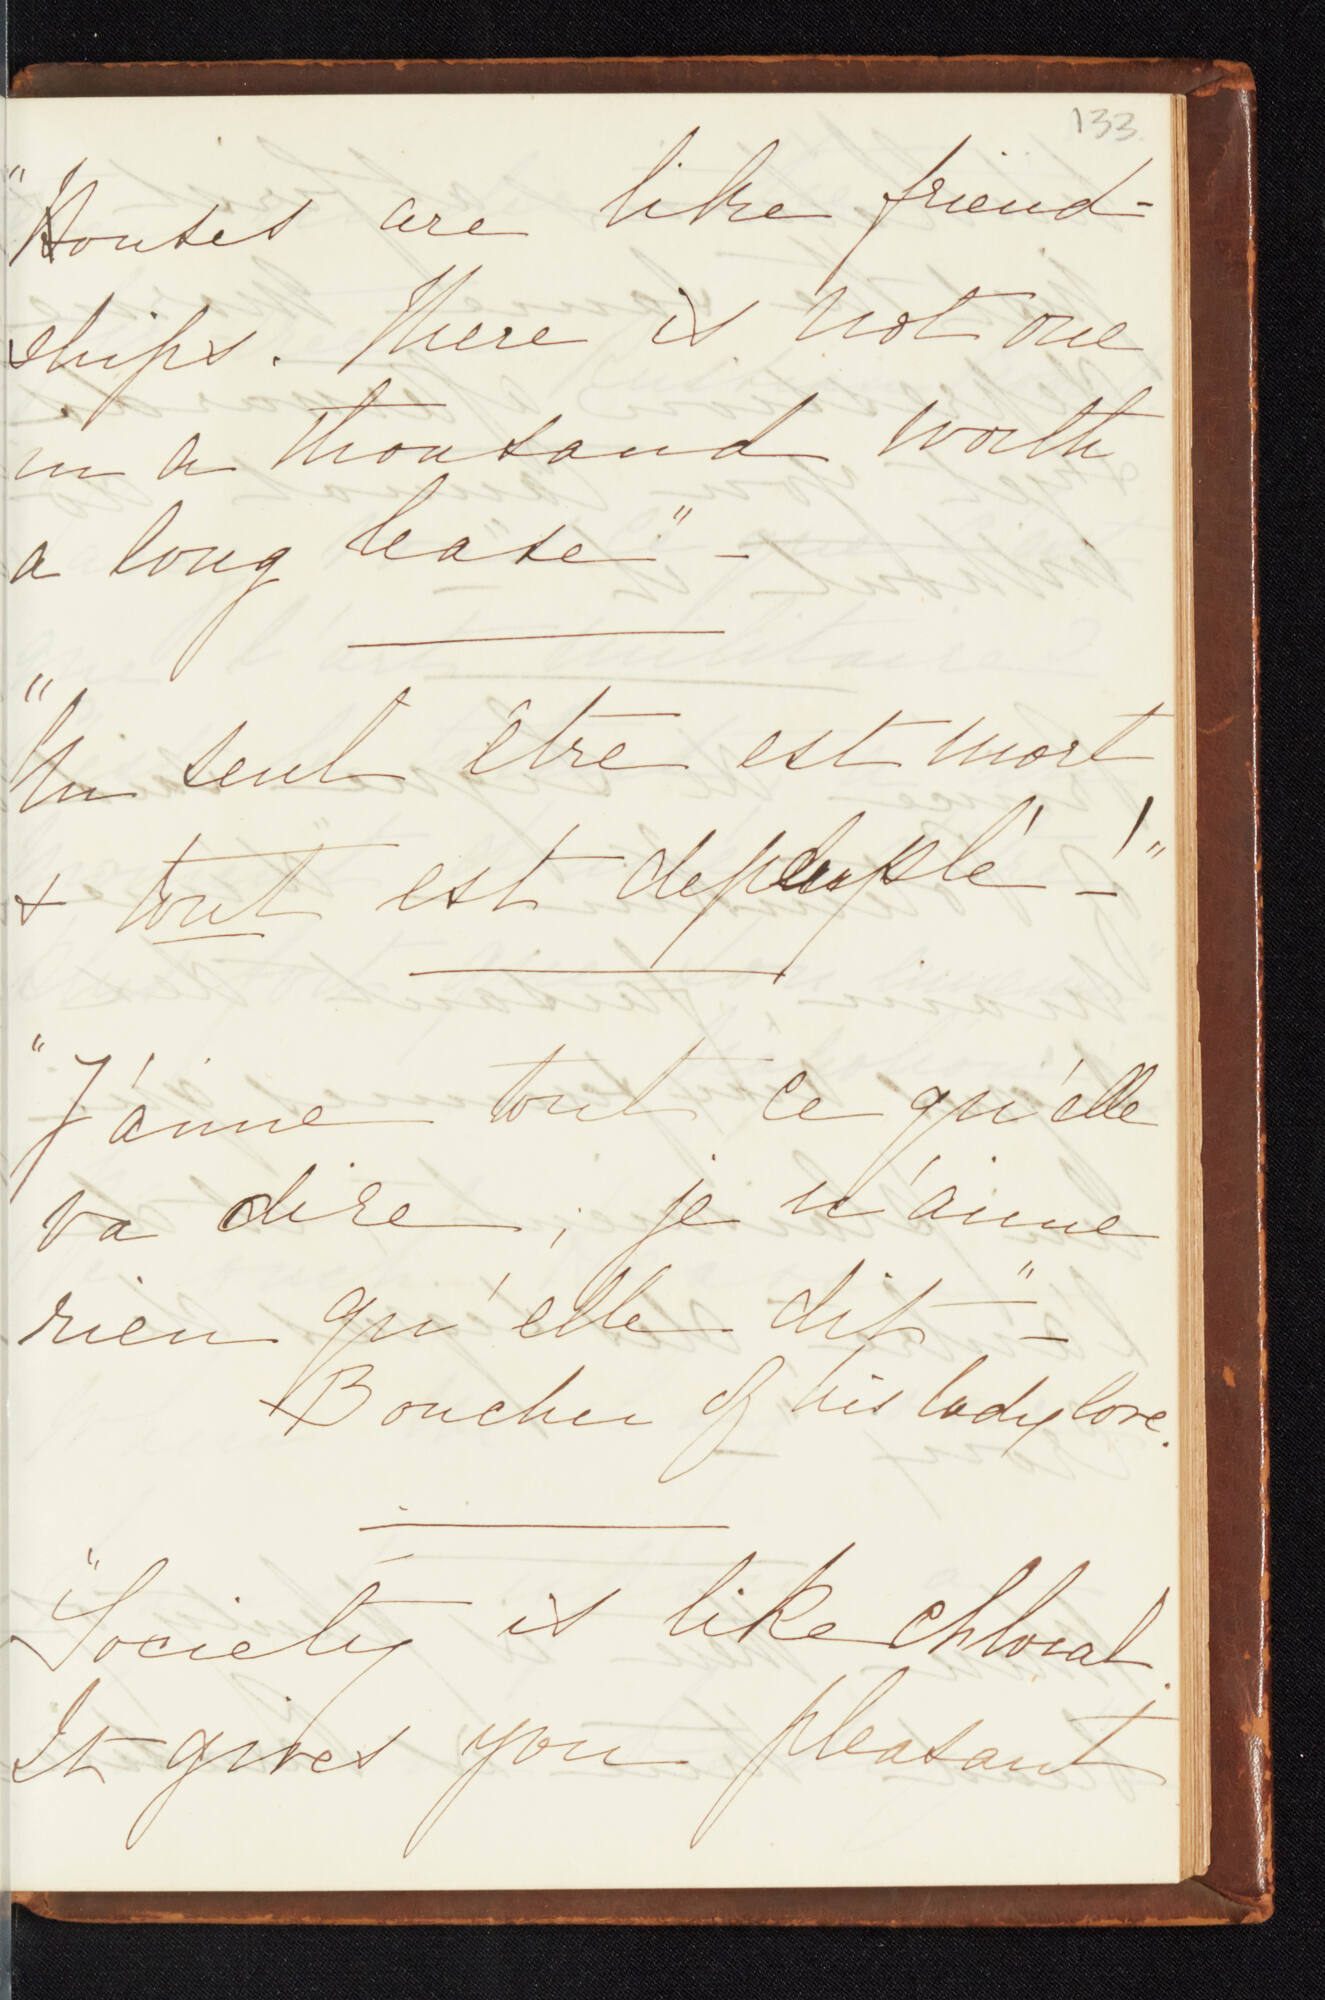 133.
"Houses are like friend-
ships. There is not one
in a thousand worth
a long lease" -
"Un seul être est mort
& tout est depeuplé - !"
"J'aime tout ce qu'elle
va dire ; je n'aime
rien qu'elle dit" -
Boucher of his lady love.
"Society is like chloral.
It gives you pleasant